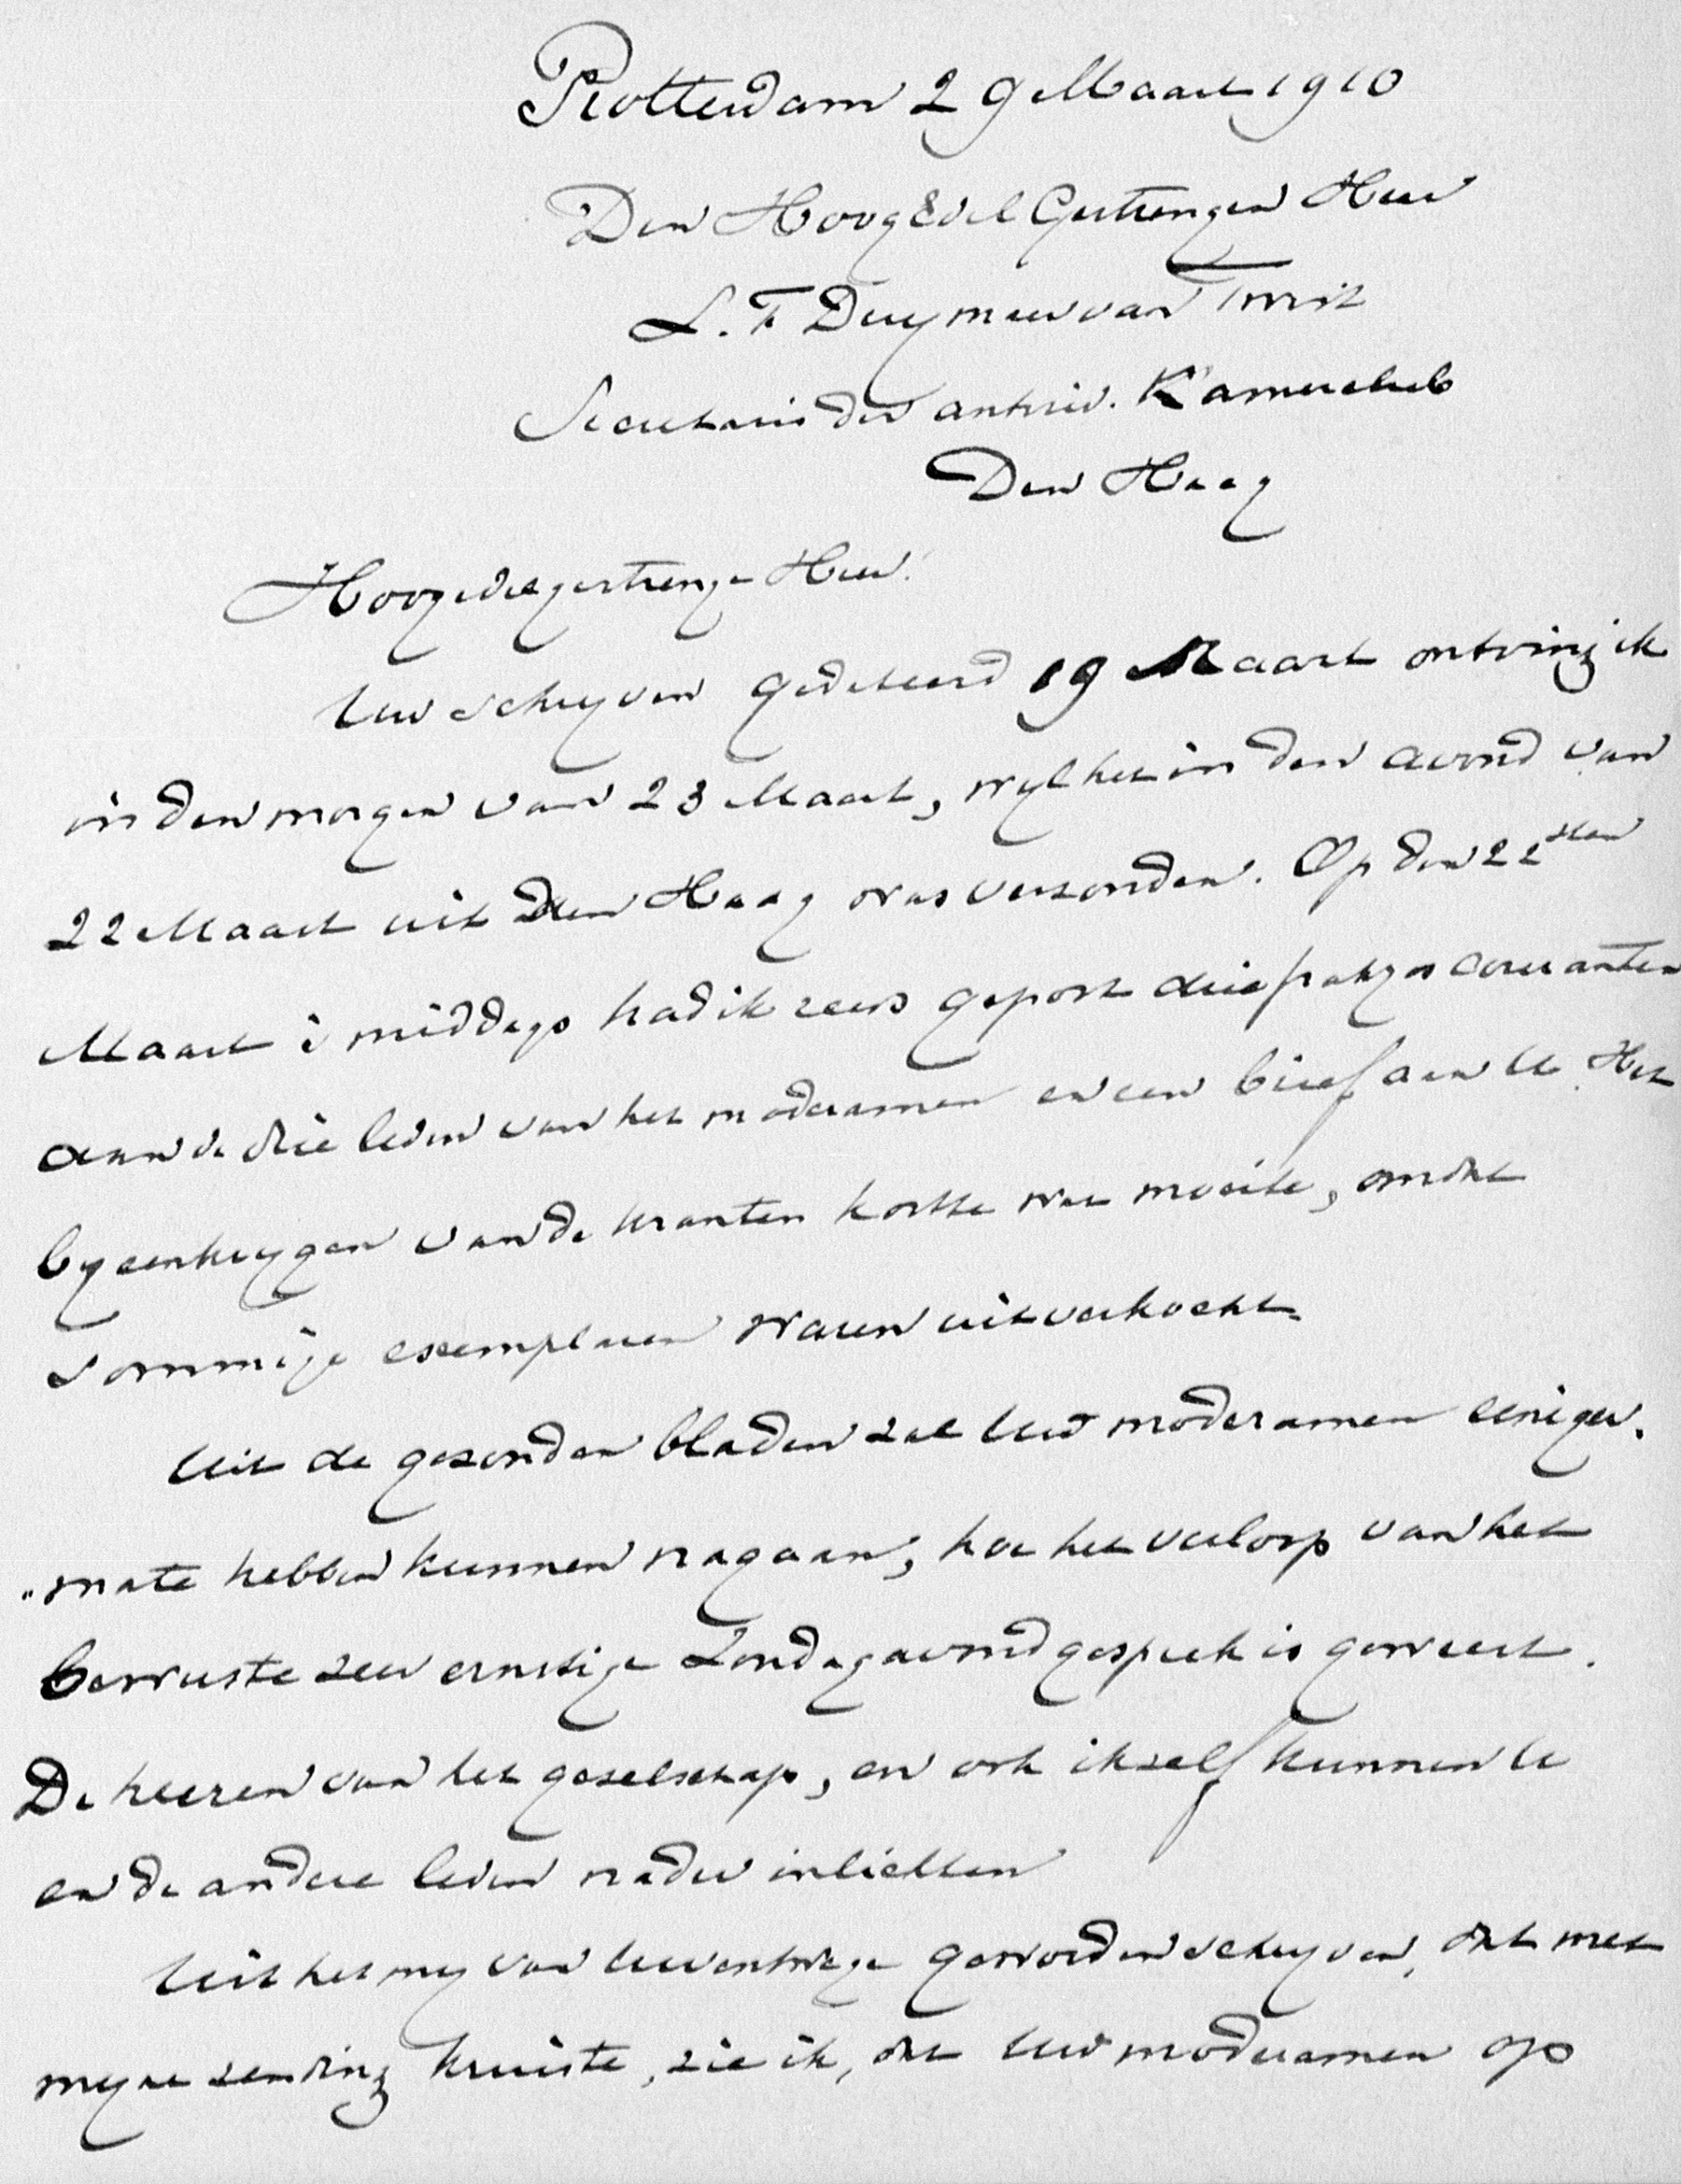 Rotterdam 29 Maart 1910
Den HoogEdelGestrengen Heer
L. F Duymaer van Twist
Secretaris der antirev. Kamerclub
Den Haag
Hoogedelgestrenge Heer.
Uw schryven gedateerd 19 Maart ontving ik
in den morgen van 23 Maart, wyl het in den avond van
22 Maart uit Den Haag was verzonden. Op den 22sten
Maart 's middags had ik reeds gepost drie pakjes couranten
aan de drie leden van het moderamen en een brief aan U. Het
byeenkrygen van de kranten kostte wat moeite, omdat
sommige exemplaren waren uitverkocht.
Uit de gezonden bladen zal Uw moderamen eeniger-
"mate hebben kunnen nagaan, hoe het verloop van het
bewuste zeer ernstige Zondagavondgesprek is geweest.
De heeren van het gezelschap, en ook ikzelf kunnen U
en de andere leden nader inlichten
Uit het my van Uwentwege geworden schryven, dat met
myne zending kruiste, zie ik, dat Uw moderamen op